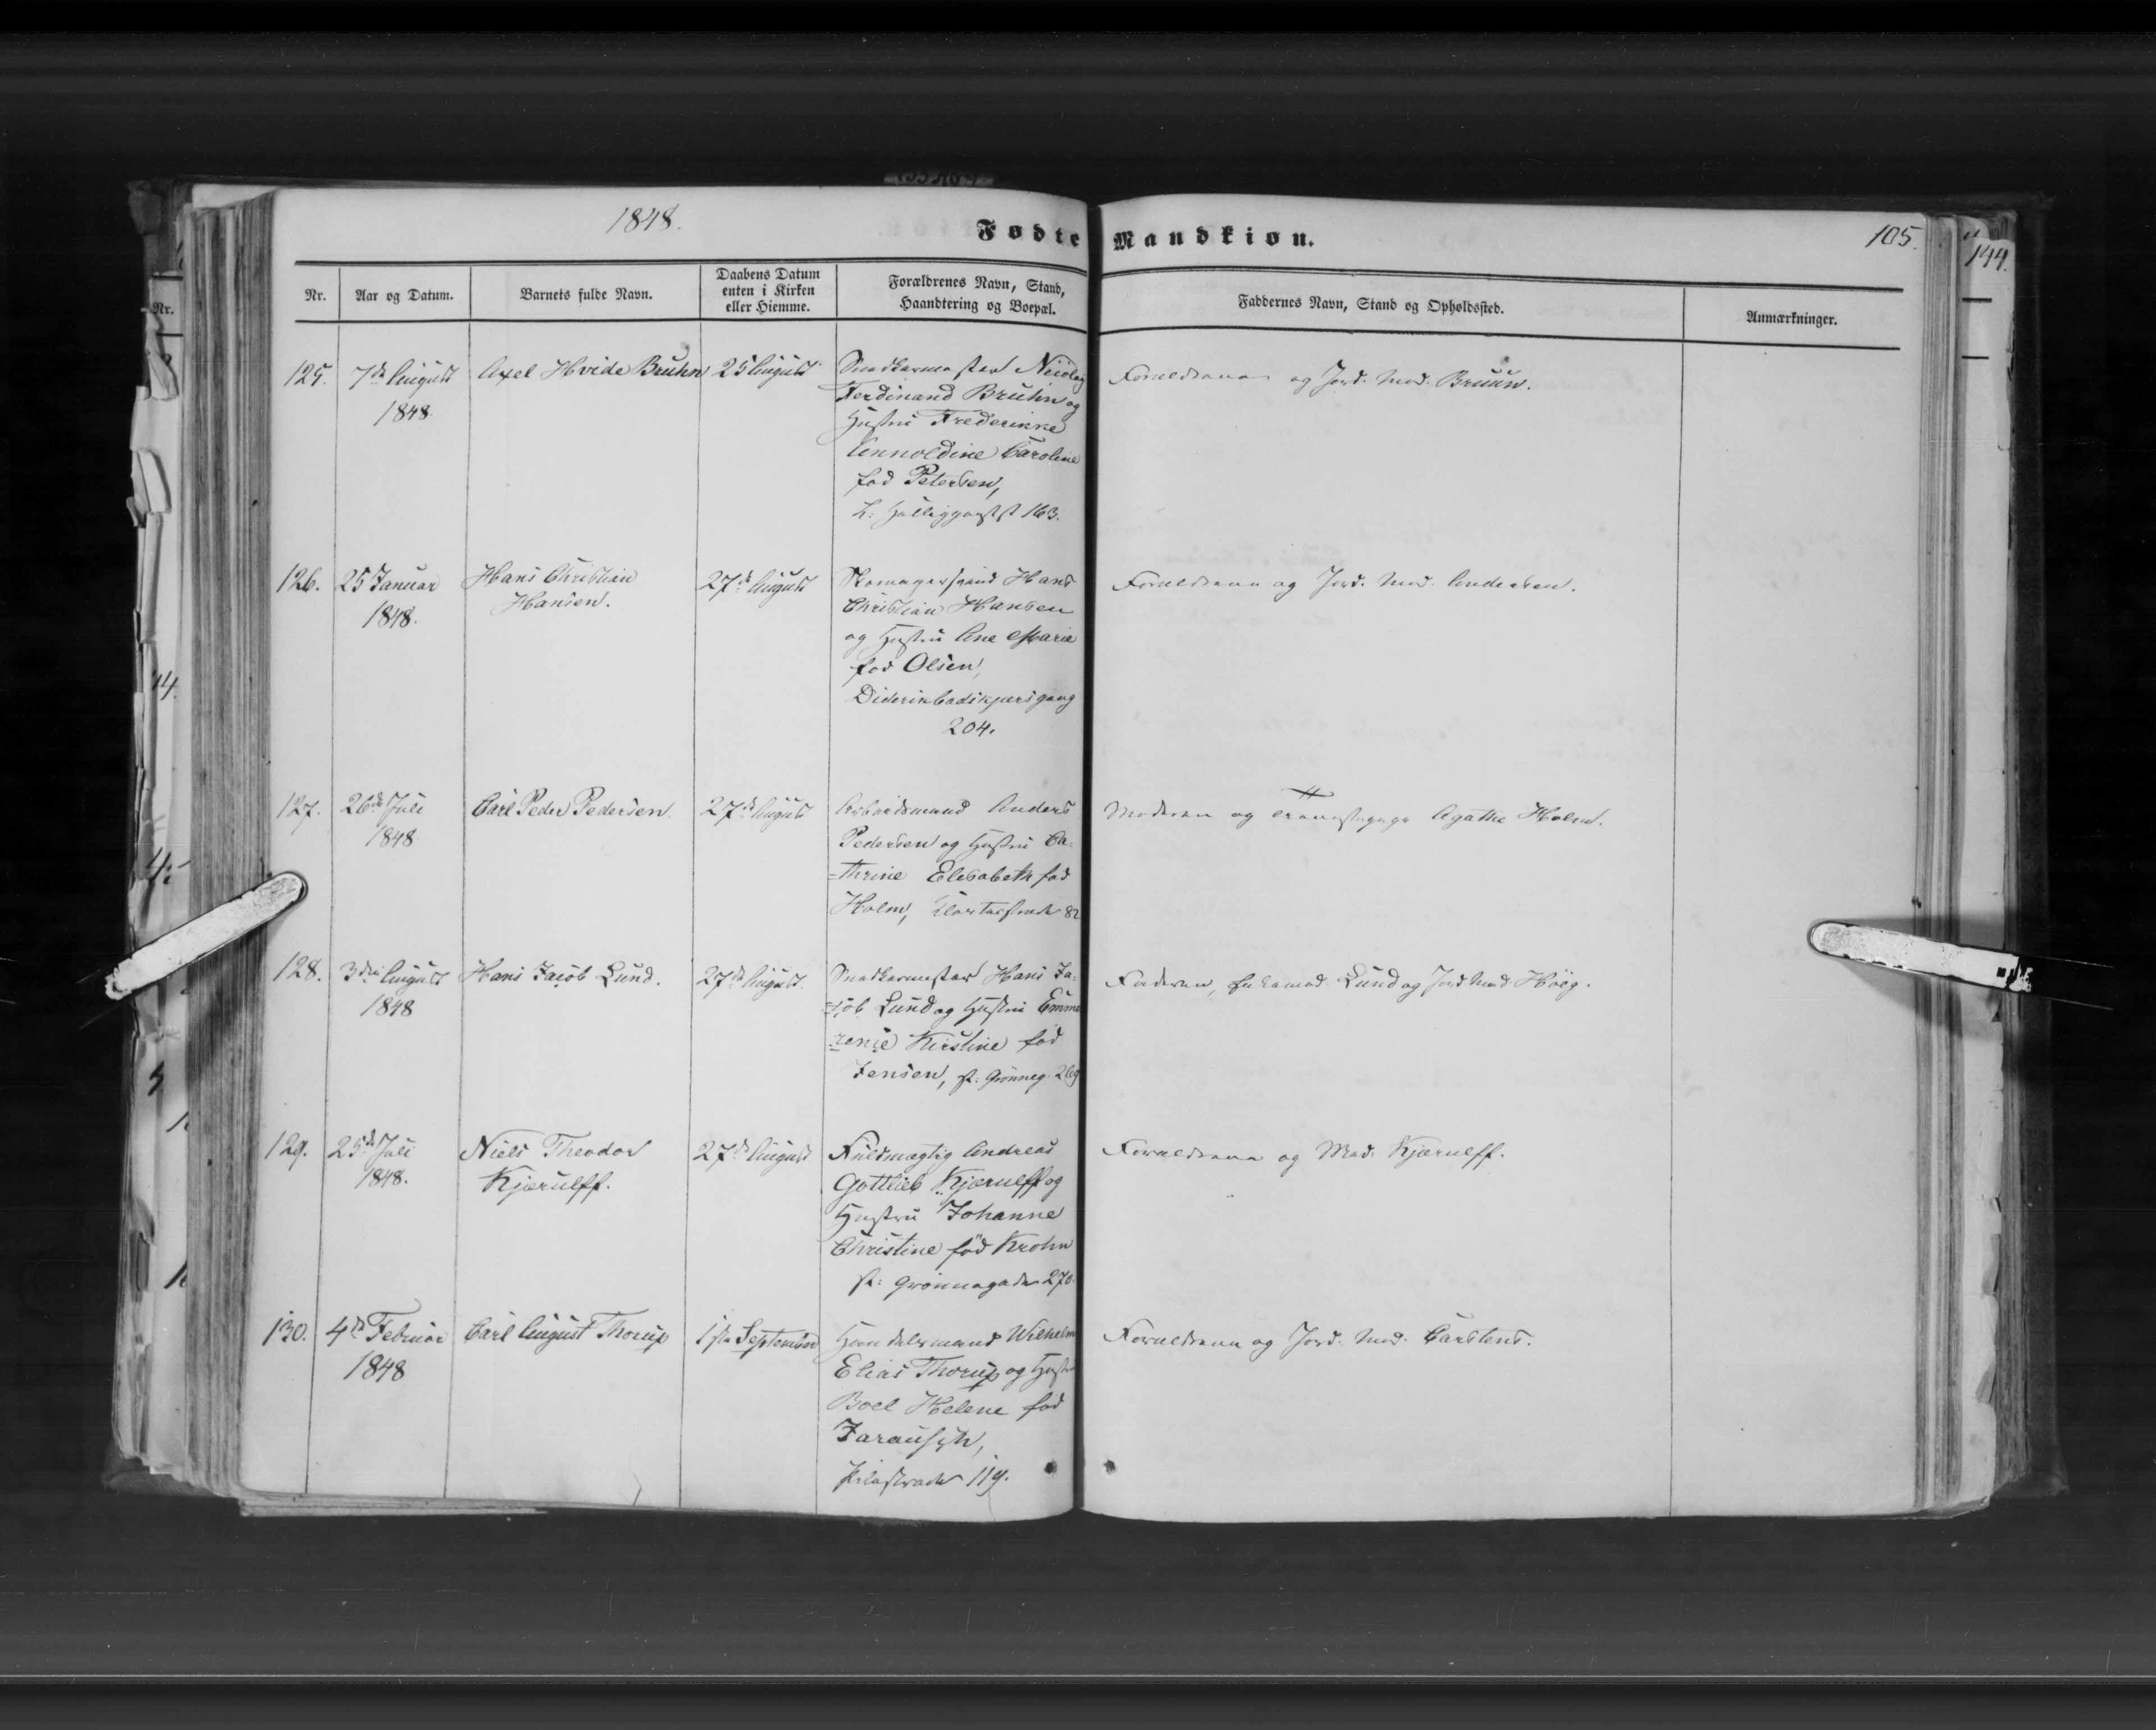 1848.
Fødte Mandkiøn.
105.
144.
Nr.
Nr.
Aar og Datum.
Barnets fulde Navn.
Daabens Datum
enten i Kirken
eller Hiemme.
Forældrenes Navn, Stand,
Haandtering og Boepæl.
Faddernes Navn, Stand og Opholdssted.
Anmærkninger.
125.
7de August
1848
Axel Hvide Bruhn
25 August
Snedkermester Nicolay
Ferdinand Bruhn og
Hustru Frederikke
Annoldine Caroline
fød Petersen,
163.
Forældrene og Jord. Mad. Bruun.
126.
25 Januar
1848.
Hans Christian
Hansen.
27de August
Skomagersvend Hans
Christian Hansen
og Hustru Ane Marie
fød Olsen,
Diderikbadskjærsgang
204.
Forældrene og Jord. Mad. Andersen.
127.
26de Juli
1848
Carl Peder Pedersen
27de August
Arbeidsmand Anders
Pedersen og Hustru Ca-
-thrine Elisabeth fød
Holm, 82
Moderen og Agathe Holm.
128.
3die August
1848
Hans Jacob Lund.
27de August
Snedkermester Hans Ja-
-cob Lund og Hustru Emme
-rense Kirstine fød
Jensen, st: Grönneg. 269
Faderen, Lund og Jord Mad. Höeg.
129.
25de Juli
1848.
Niels Theodor
Kjerulff.
27de August
Fuldmægtig Andreas
Gottlieb Kjerulff og
Hustru Johanne
Christine fød Krohn
st: Grönnegade 270.
Forældrene og Mad. Kjærulff.
130.
4de Februar
1848
Carl August Thorup
1ste September
Handelsmand Wilhelm
Elias Thorup og Hustru
Boel Helene fød
Jarausch,
Pilestræde 119.
Forældrene og Jord. Mad. Carstens.